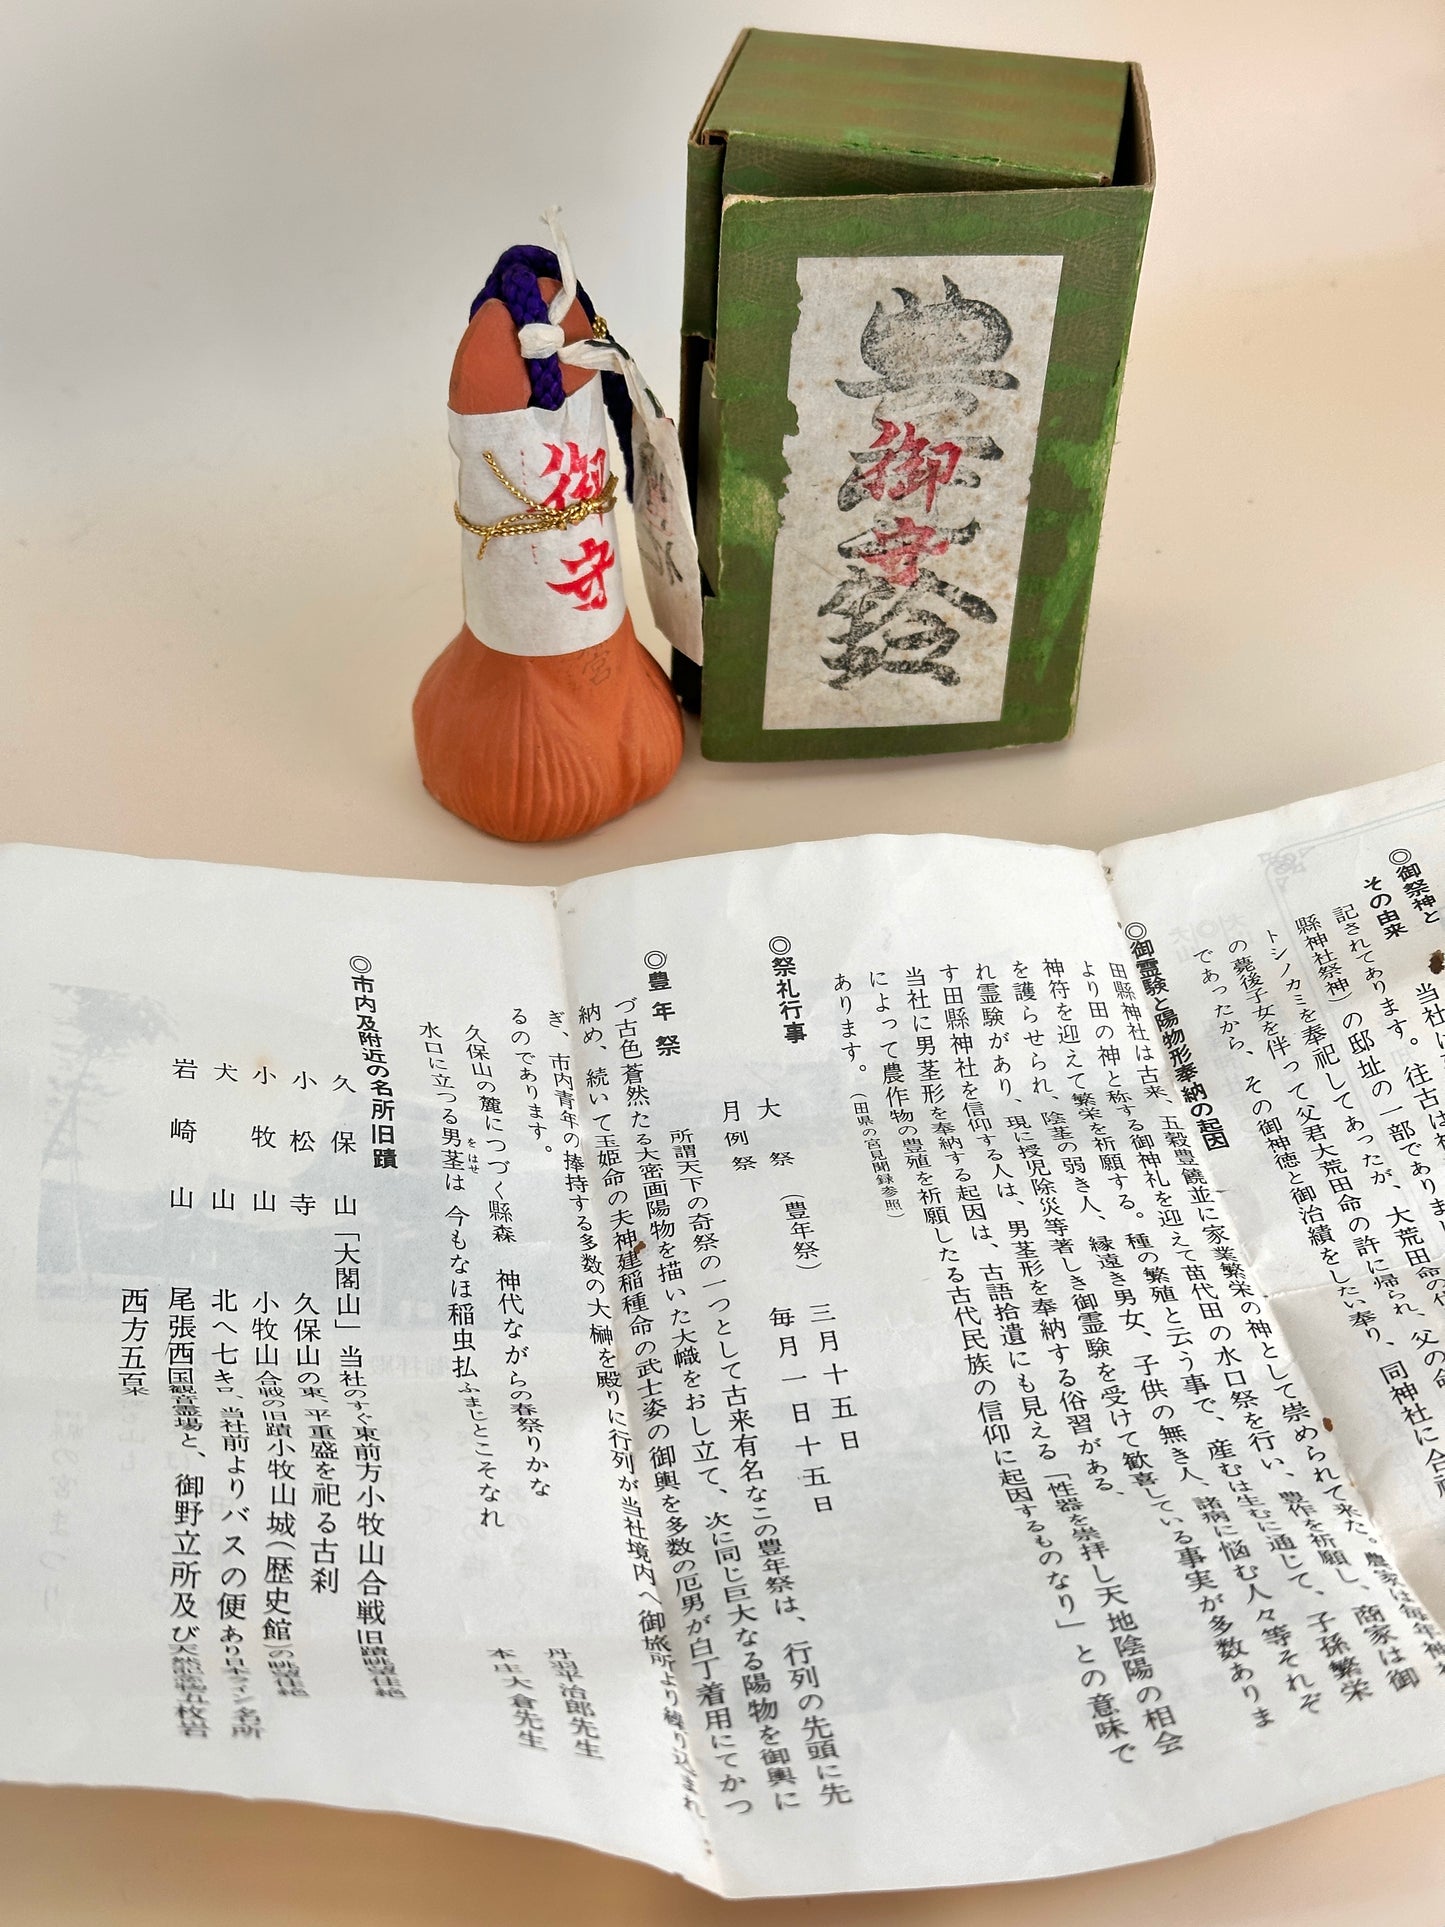 豊年鈴
御守
御守
宮
◎御祭神と
その由来
記されてあります。往古は神
縣神社祭神)の邸址の一部でありまし
トシノカミを奉祀してあったが、大荒田命の
の薨後子女を伴って父君大荒田命の許に帰られ、父の命
であったから、その御神徳と御治績をしたい奉り、同神社に合祀
◎御霊験と陽物形奉納の起因
田縣神社は古来、五穀豊饒並に家業繁栄の神として崇められて来た。農家は毎年神
より田の神と称する御神札を迎えて苗代田の水口祭を行い、豊作を祈願し、商家は御
神符を迎えて繁栄を祈願する。種の繁殖と云う事で、産むは生むに通じて、子孫繁栄
を護らせられ、陰茎の弱き人、縁遠き男女、子供の無き人、諸病に悩む人々等それぞ
れ霊験があり、現に授児除災等著しき御霊験を受けて歓喜している事実が多数ありま
す田縣神社を信仰する人は、男茎形を奉納する俗習がある、
当社に男茎形を奉納する起因は、古語拾遺にも見える「性器を崇拝し天地陰陽の相会
によって農作物の豊殖を祈願したる古代民族の信仰に起因するものなり」との意味で
あります。(田県の宮見聞録参照)
◎祭礼行事
大祭(豊年祭) 三月十五日
月例祭 毎月一日十五日
◎豊年祭
所謂天下の奇祭の一つとして古来有名なこの豊年祭は、行列の先頭に先
づ古色蒼然たる大密画陽物を描いた大幟をおし立て、次に同じ巨大なる陽物を御輿に
納め、続いて玉姫命の夫神建稲種命の武士姿の御輿を多数の厄男が白丁着用にてかつ
ぎ、市内青年の捧持する多数の大榊を殿りに行列が当社境内へ御旅所より練り込まれ
るのであります。
久保山の麓につづく縣森 神代ながらの春祭りかな
丹羽平治郎先生
水口に立つる男茎は 今もなほ稲虫払ふまじとこそなれ
をはせ
本庄大倉先生
◎市内及附近の名所旧蹟
久保山「大閣山」当社のすぐ東前方小牧山合戦旧蹟眺望佳絶
小松寺 久保山の東、平重盛を祀る古刹
小牧山 小牧山合戦の旧蹟小牧山城(歴史館)の眺望佳絶
犬山 北へ七キロ、当社前よりバスの便あり日本ライン名所
岩崎山 尾張西国観音霊場と、御野立所及び天然記念物五枚岩
西方五百米